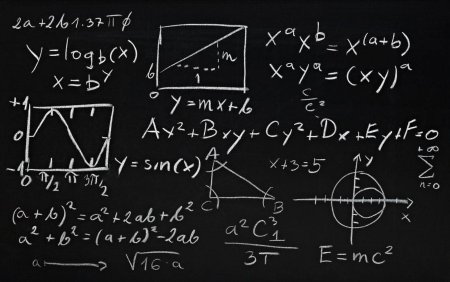 2a+2b1.37πφ
y=log_b(x)
x=b^y
m
1
b
0
y=mx+b
x^a x^b = x^(a+b)
x^a y^a = (xy)^a
c/c²
Ax²+Bxy+Cy²+Dx+Ey+F=0
+1
0
-1
0 π/2 π 3π/2
y=sin(x)
A
C B
x+3=5
y
x
+∞
∑
n=0
(a+b)²=a²+2ab+b²
a²+b²=(a+b)²-2ab
a → √16·a
a²C₁³/3π
E=mc²